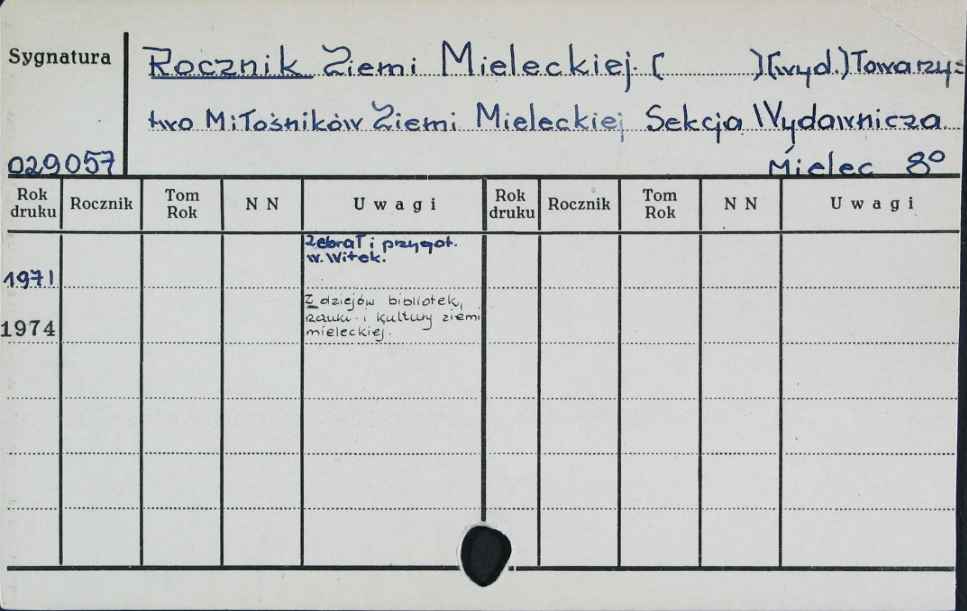 Sygnatura
Rocznik Ziemi Mieleckiej. ( ) (wyd.) Towarzys=
two Miłośników Ziemi Mieleckiej Sekcja Wydawnicza
029057 Mielec 8°
Rok druku Rocznik Tom Rok N N Uwagi Rok druku Rocznik Tom Rok N N Uwagi
Zebrał i przygot.
W. Witek.
1971
Z dziejów bibliotek,
nauki i kultury ziemi
1974 mieleckiej.